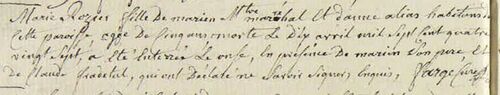 Marie Rozier fille de marien Mtre maréchal Et danne alias habitans de
Cette paroisse, agée de cinq ans morte Le Dix avril mil Sept cent quatre
vingt Sept, a Eté Enterrée Le onse, En présence de marien Son pere Et
de Claude fradetal, qui ont Déclaré ne Savoir Signer, Enquis, farge Curé